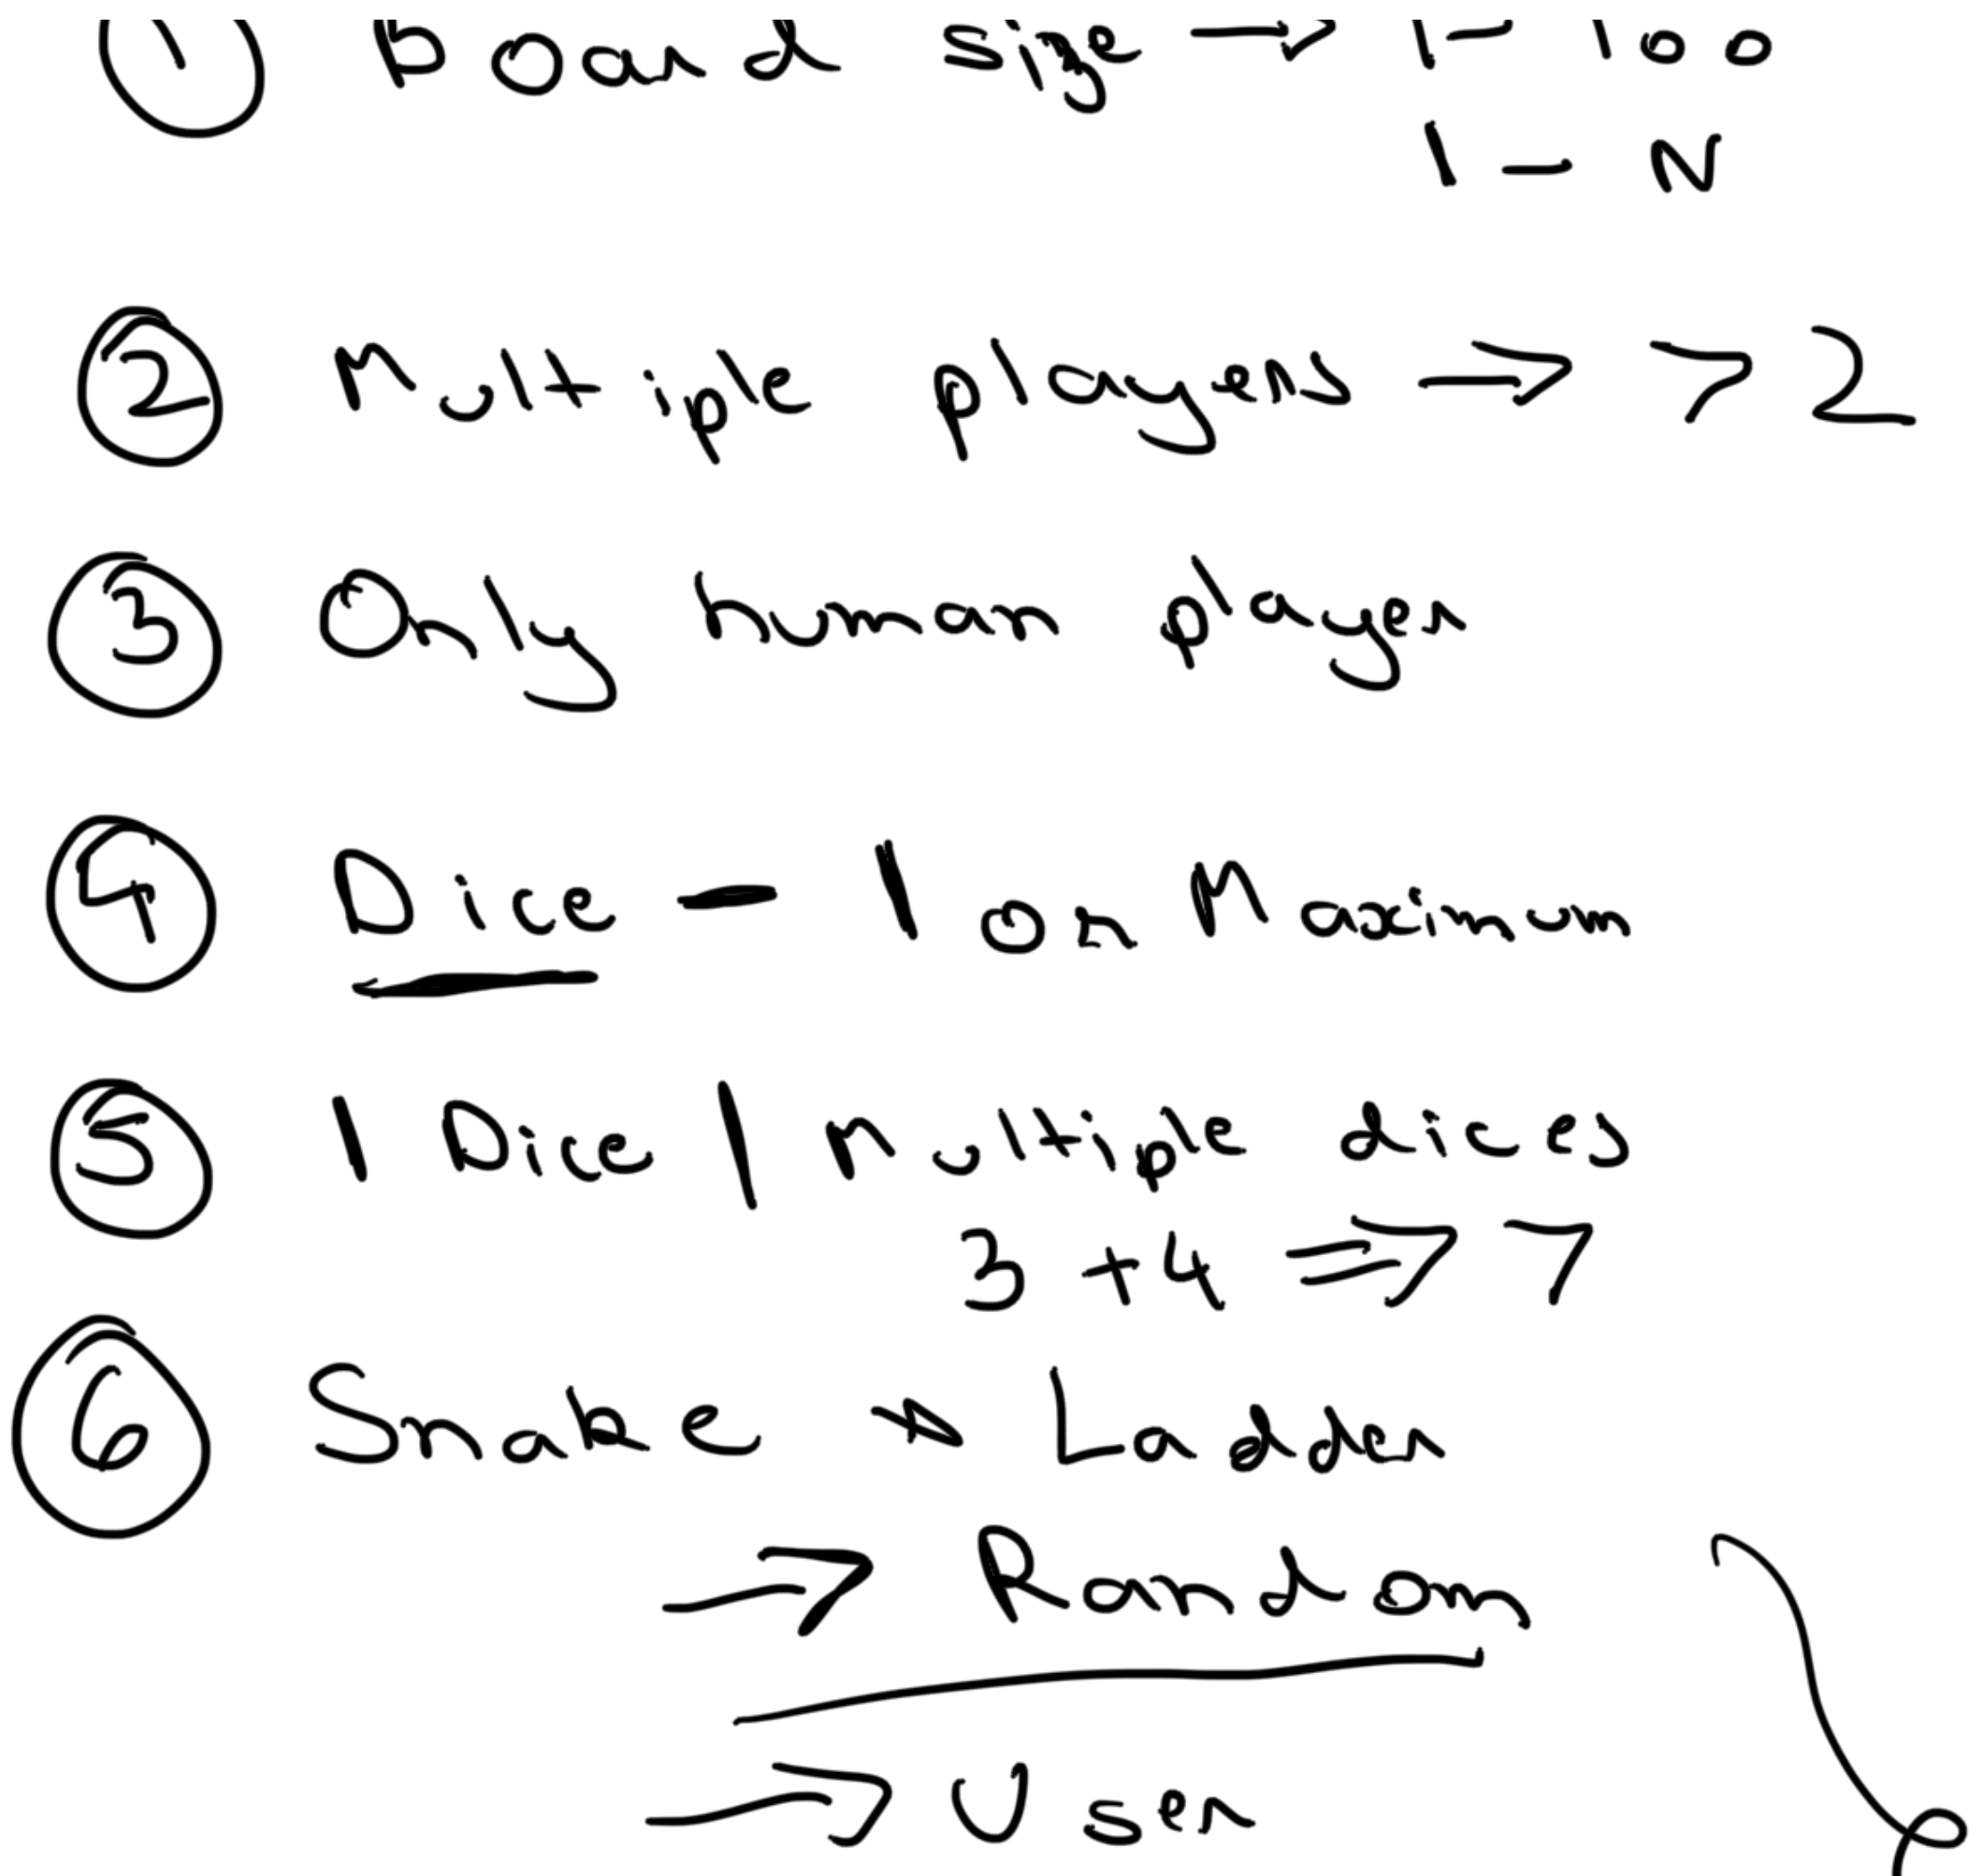 ① Board size → 1 - 100
1 - N
② Multiple players → > 2
③ Only human player
④ Dice - 1 or Maximum
⑤ 1 Dice / Multiple dices
3 + 4 ⇒ 7
⑥ Snake → Ladder
→ Random
→ User